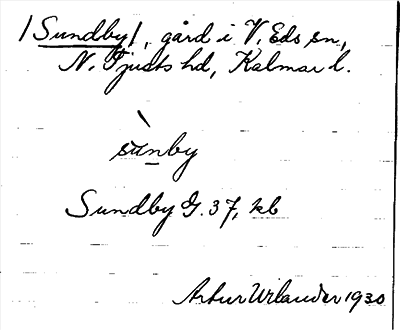 /Sundby/, gård i V. Eds sn,
N. Tjusts hd, Kalmar l.
sùnby
Sundby G. 37, kb
Artur Wilander 1930